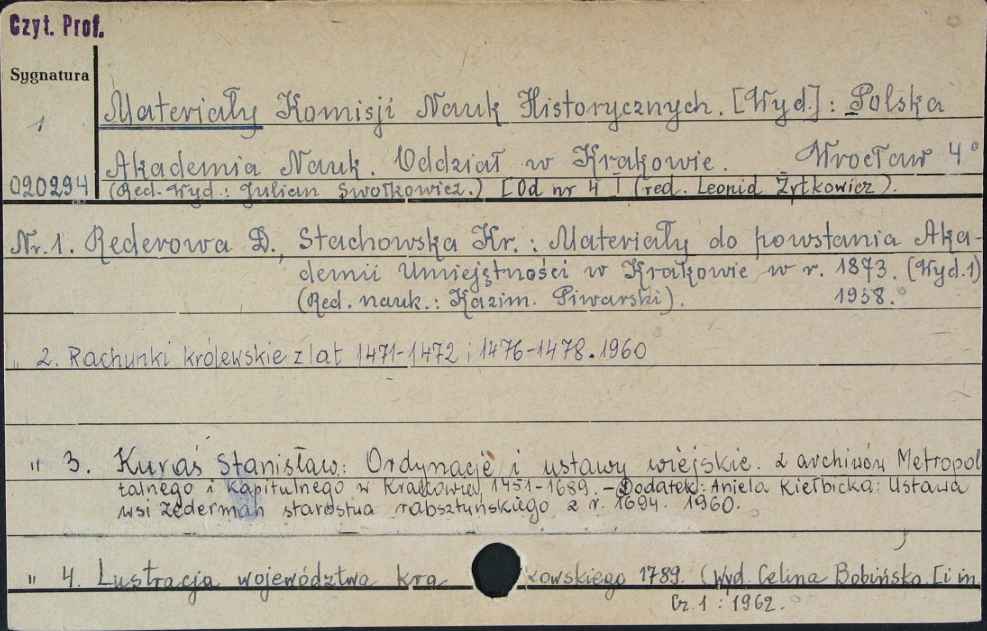 Czyt. Prof.
Sygnatura
1
020294
Materiały Komisji Nauk Historycznych. [Wyd.]: Polska
Akademia Nauk. Oddział w Krakowie. Wrocław 4°
(Red. Wyd.: Julian Swołkowicz.) [Od nr 4 ] (red. Leonid Żytkowicz).
Nr. 1. Rederowa D., Stachowska Kr.: Materiały do powstania Aka-
demii Umiejętności w Krakowie w r. 1873. (Wyd. 1)
(Red. nauk.: Kazim. Piwarski). 1958.
" 2. Rachunki królewskie z lat 1471-1472 i 1476-1478. 1960
" 3. Kuraś Stanisław: Ordynacje i ustawy wiejskie. z archiwów Metropol
talnego i Kapitulnego w Krakowie, 1451-1689. - Dodatek: Aniela Kiełbicka: Ustawa
wsi Zederman starostwa rabsztyńskiego z r. 1694. 1960.
" 4. Lustracja województwa kra kowskiego 1789. (Wyd. Celina Bobińska [i in.
Cz. 1 : 1962.